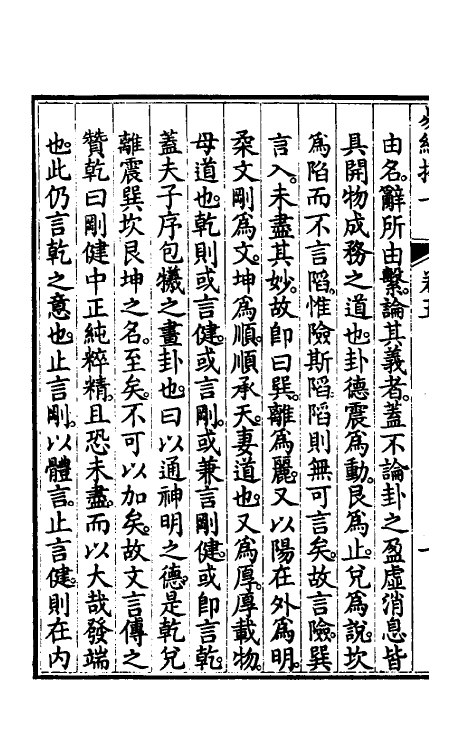 由名。辭所由繫。論其義者。蓋不論卦之盈虛消息皆
具開物成務之道也。卦德震爲動。艮爲止。兌爲説。坎
爲陷而不言䧟。惟險斯䧟。䧟則無可言矣。故言險。巽
言入。未盡其妙。故卽曰巽。離爲麗。又以陽在外爲明。
柔文剛爲文。坤爲順。順承天。妻道也。又爲厚。厚載物。
母道也。乾則或言健。或言剛。或兼言剛健。或卽言乾。
蓋夫子序包犧之畫卦也。曰以通神明之德。是乾兌
離震巽坎艮坤之名。至矣。不可以加矣。故文言傳之
贊乾曰剛健中正純粹精。且恐未盡。而以大哉發端
也。此仍言乾之意也。止言剛。以體言。止言健。則在内